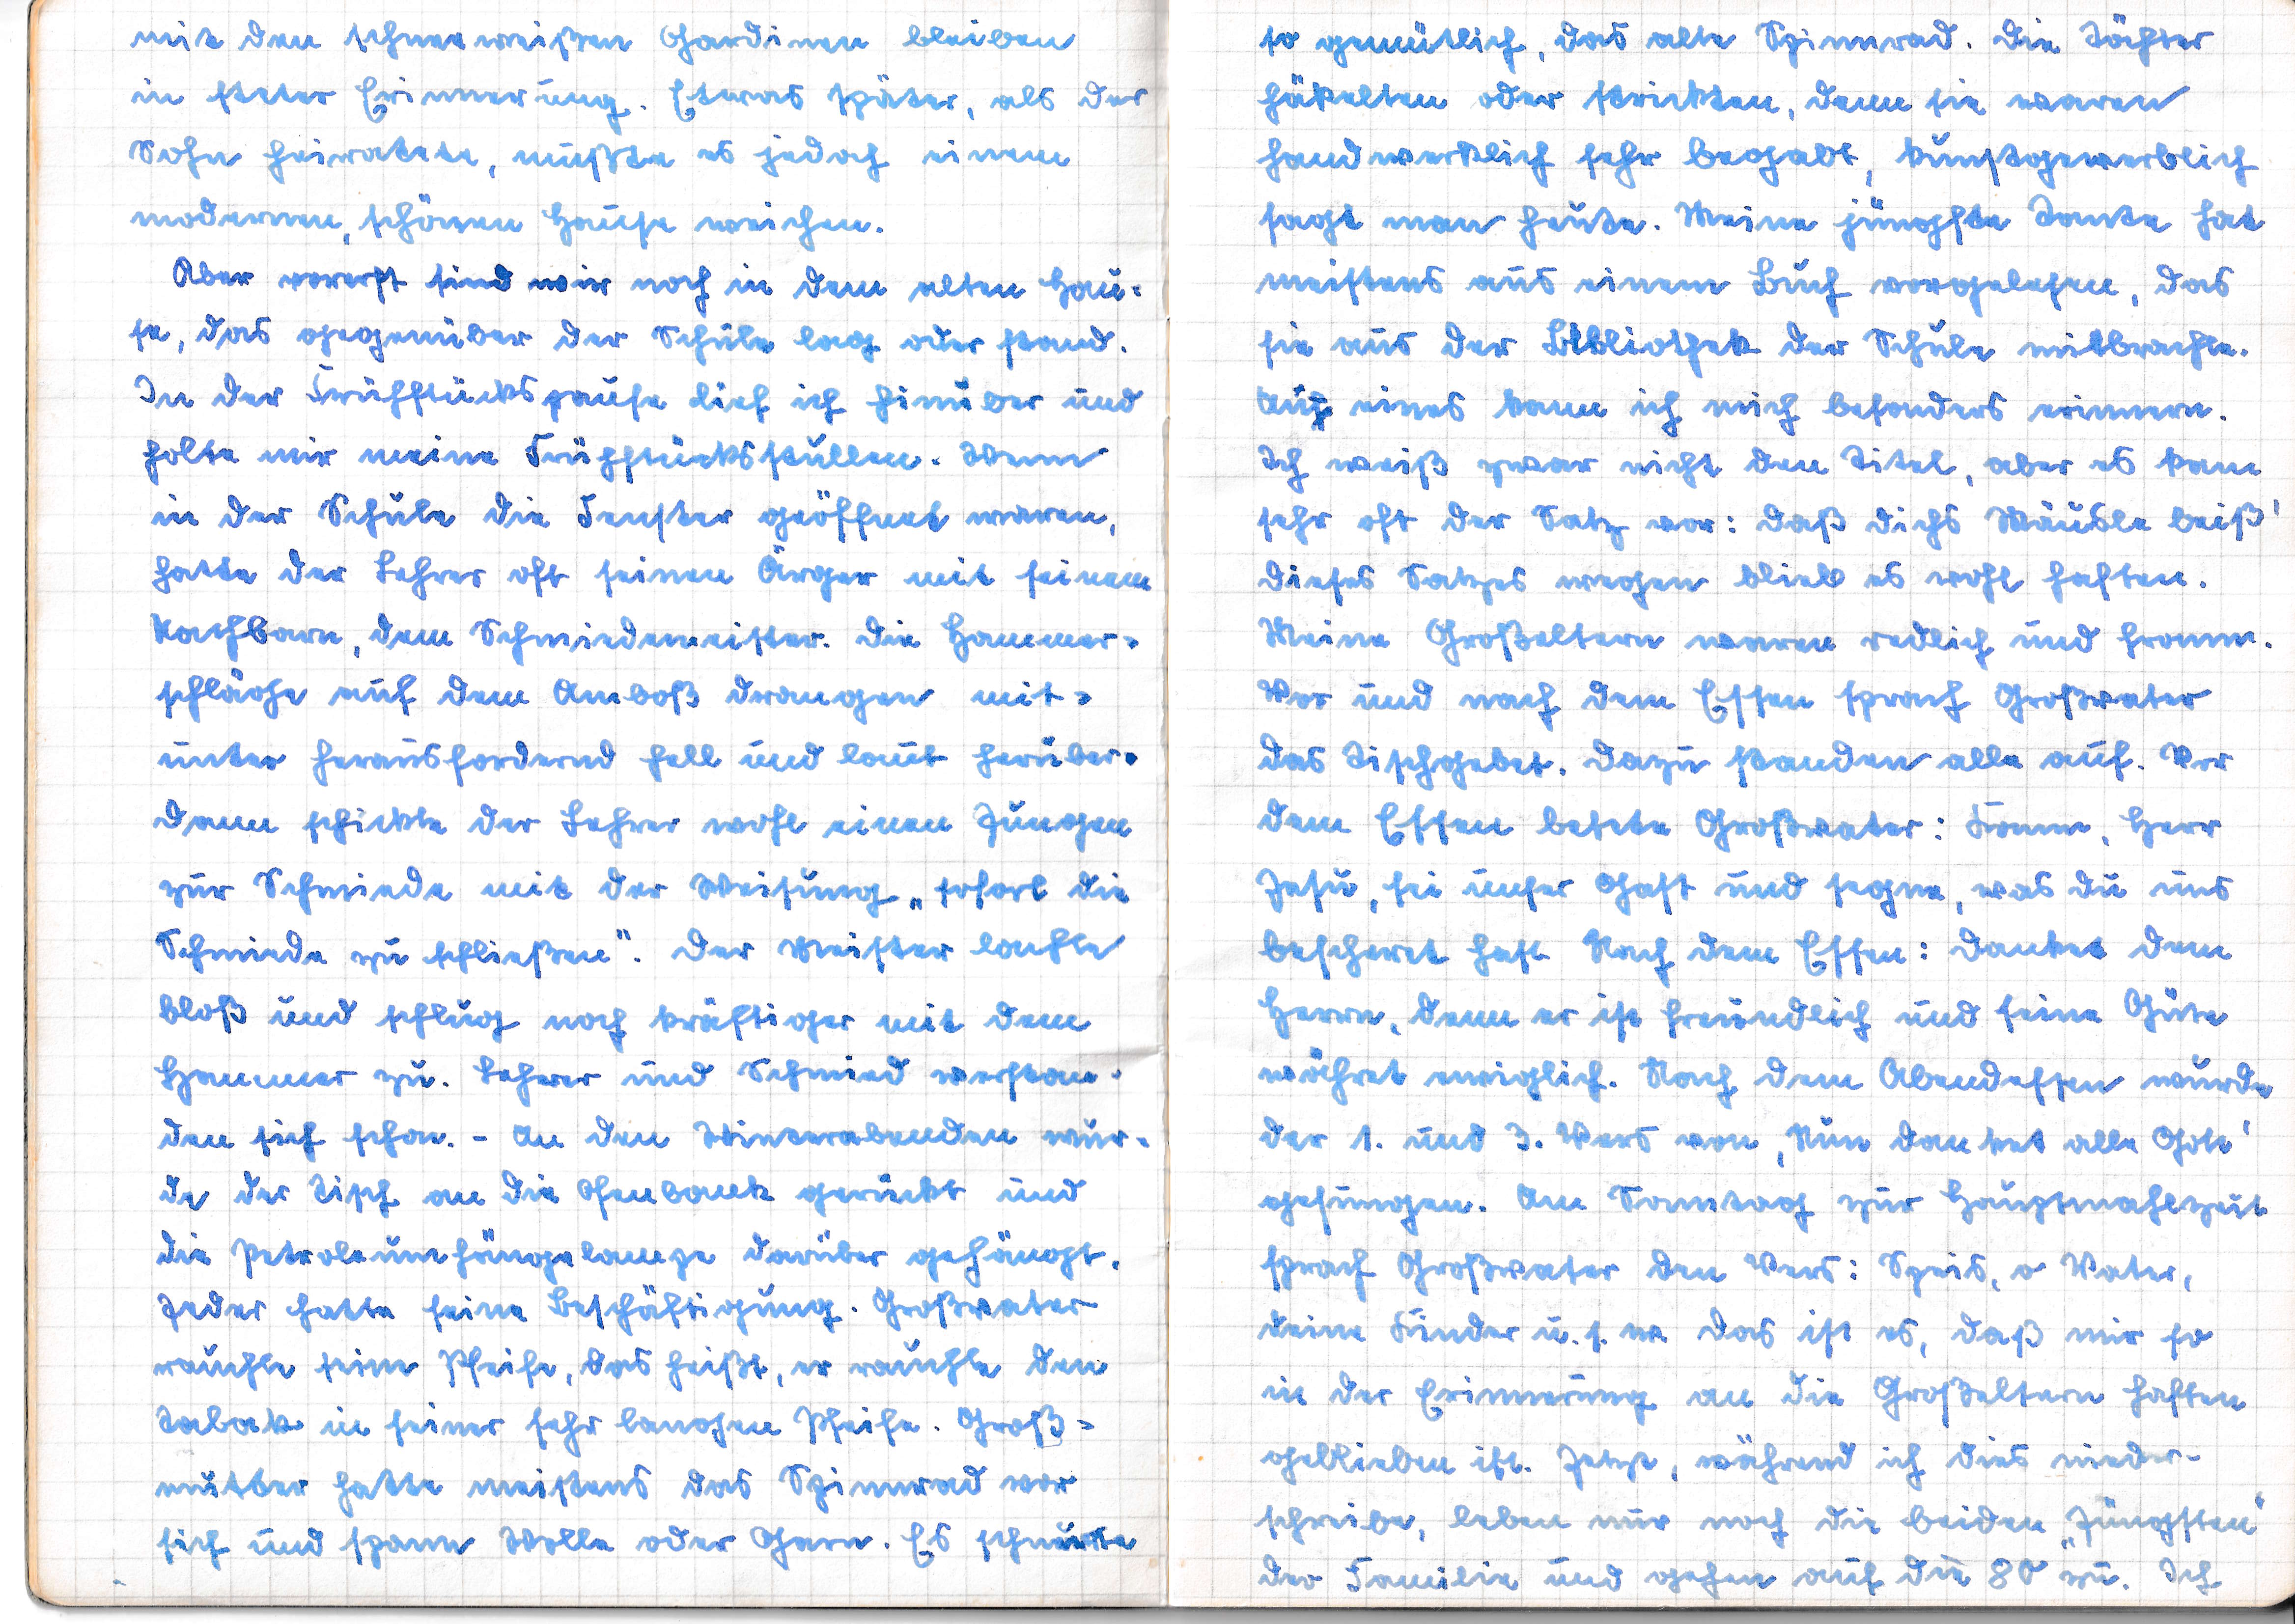 mit den schneeweißen Gardinen bleiben
in steter Erinnerung. Etwas später, als der
Sohn heiratete, mußte es jedoch einem
modernen, schönen Hause weichen.
Aber vorerst sind wir noch in dem alten Hau-
se, das gegenüber der Schule lag oder stand.
In der Frühstückspause lief ich hinüber und
holte mir meine Frühstücksstullen. Wenn
in der Schule die Fenster geöffnet waren,
hatte der Lehrer oft seinen Ärger mit seinem
Nachbarn, dem Schmiedemeister. Die Hammer-
schläge auf dem Amboß drangen mit-
unter herausfordernd hell und laut herüber.
Dann schickte der Lehrer wohl einen Jungen
zur Schmiede mit der Weisung „sofort die
Schmiede zu schließen". Der Meister lachte
bloß und schlug noch kräftiger mit dem
Hammer zu. Lehrer und Schmied verstan-
den sich schon. - An den Winterabenden wur-
de der Tisch an die Ofenbank gerückt und
die Petroleumhängelampe darüber gehängt.
Jeder hatte seine Beschäftigung. Großvater
rauchte seine Pfeife, das heißt, er rauchte den
Tabak in seiner sehr langen Pfeife. Groß-
mutter hatte meistens das Spinnrad vor
sich und spann Wolle oder Garn. Es schnurrte
so gemütlich, das alte Spinnrad. Die Töchter
häkelten oder strickten, denn sie waren
handwerklich sehr begabt, kunstgewerblich
sagt man heute. Meine jüngste Tante hat
meistens aus einem Buch vorgelesen, das
sie aus der Bibliothek der Schule mitbrachte.
Auf eines kann ich mich besonders erinnern.
Ich weiß zwar nicht den Titel, aber es kam
sehr oft der Satz vor: daß dichs Mäusle beiß'
Dieses Satzes wegen blieb es wohl haften.
Meine Großeltern waren redlich und fromm.
Vor und nach dem Essen sprach Großvater
das Tischgebet. Dazu standen alle auf. Vor
dem Essen betete Großvater: Komm, Herr
Jesu, sei unser Gast und segne, was du uns
bescheret hast. Nach dem Essen: Danket dem
Herrn, denn er ist freundlich und seine Güte
währet ewiglich. Nach dem Abendessen wurde
der 1. und 3. Vers von ‚Nun danket alle Gott'
gesungen. Am Sonntag zur Hauptmahlzeit
sprach Großvater den Vers: Speis, o Vater,
deine Kinder u. s. w. Das ist es, daß mir so
in der Erinnerung an die Großeltern haften
geblieben ist. Jetzt, während ich dies nieder-
schreibe, leben nur noch die beiden „Jüngsten"
der Familie und gehen auf die „80" zu. Ich